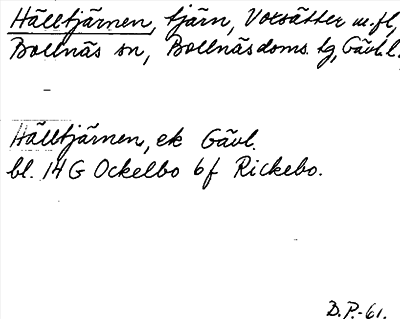 Hälltjärnen, tjärn, Voxsätter m.fl,
Bollnäs sn, Bollnäs doms. tg, Gävl.l.
Hälltjärnen, ek Gävl.
bl. 14 G Ockelbo 6 f Rickebo.
D.P.-61.